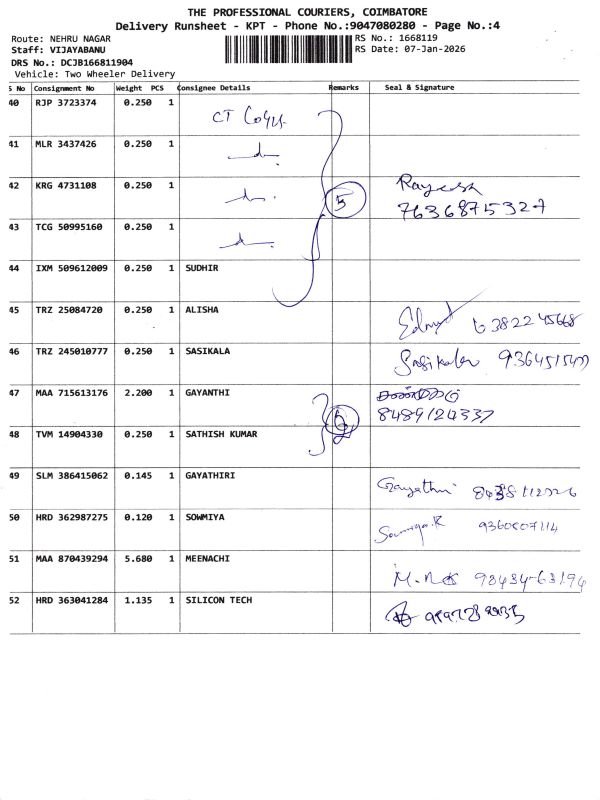 THE PROFESSIONAL COURIERS, COIMBATORE
Delivery Runsheet - KPT - Phone No.:9047080280 - Page No.:4
Route: NEHRU NAGAR
RS No.: 1668119
Staff: VIJAYABANU
RS Date: 07-Jan-2026
DRS No.: DCJB166811904
Vehicle: Two Wheeler Delivery
S No Consignment No Weight PCS Consignee Details Remarks Seal & Signature
40 RJP 3723374 0.250 1 CT
41 MLR 3437426 0.250 1
42 KRG 4731108 0.250 1 5
7636875327
43 TCG 50995160 0.250 1
44 IXM 509612009 0.250 1 SUDHIR
45 TRZ 25084720 0.250 1 ALISHA 6382245668
46 TRZ 245010777 0.250 1 SASIKALA Sasikala
47 MAA 715613176 2.200 1 GAYANTHI
8489124337
48 TVM 14904330 0.250 1 SATHISH KUMAR
49 SLM 386415062 0.145 1 GAYATHIRI Gayathri
50 HRD 362987275 0.120 1 SOWMIYA
51 MAA 870439294 5.680 1 MEENACHI 98434-63194
52 HRD 363041284 1.135 1 SILICON TECH